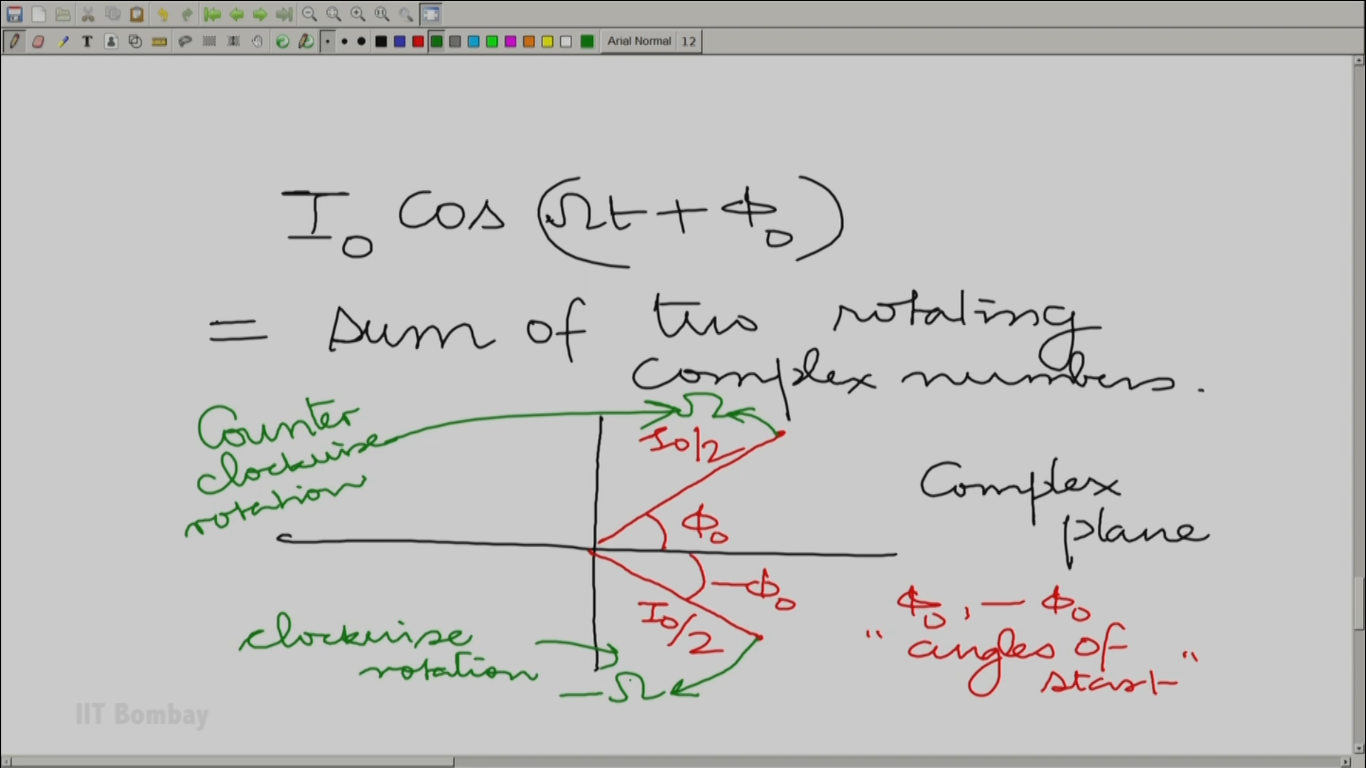 Arial Normal 12
I₀ Cos (Ωt + Φ₀)
= sum of two rotating
complex numbers.
Counter
clockwise
rotation
Ω
I₀/2
Φ₀
Complex
plane
-Φ₀
I₀/2
clockwise
rotation
-Ω
Φ₀, - Φ₀
" angles of
start "
IIT Bombay